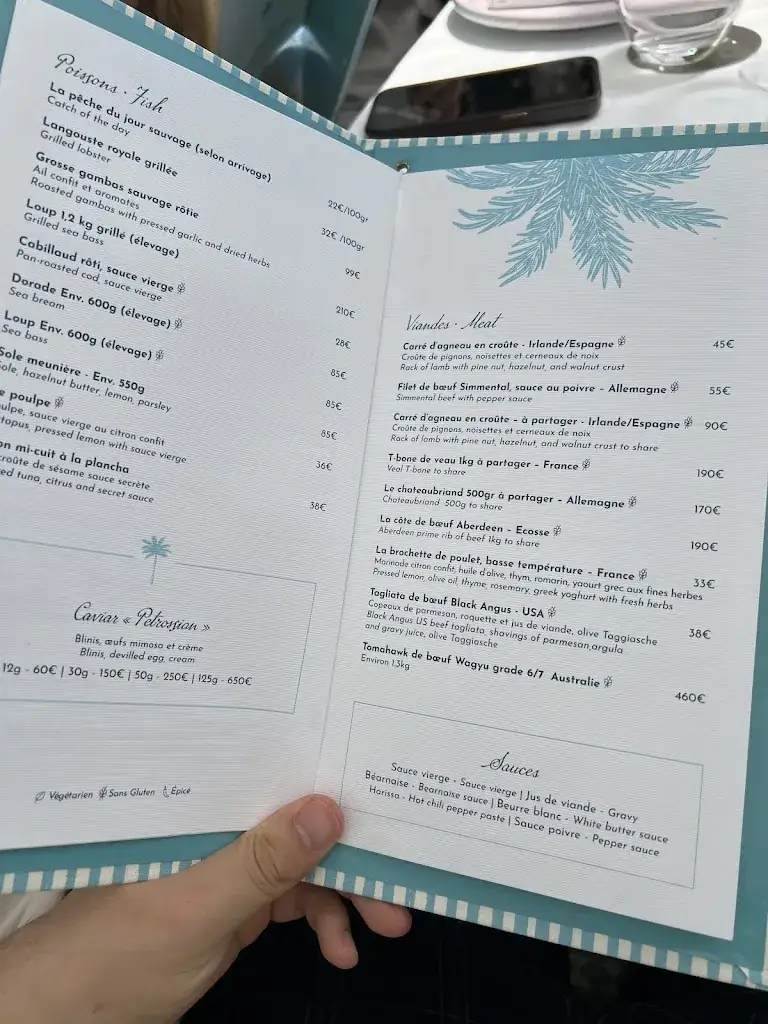 Poissons · Fish
La pêche du jour sauvage (selon arrivage)
Catch of the day
22€/100gr
Langouste royale grillée
Grilled lobster
32€ /100gr
Grosse gambas sauvage rôtie
Ail confit et aromates
Roasted gambas with pressed garlic and dried herbs
99€
Loup 1,2 kg grillé (élevage)
Grilled sea bass
210€
Cabillaud rôti, sauce vierge
Pan-roasted cod, sauce vierge
28€
Dorade Env. 600g (élevage)
Sea bream
85€
Loup Env. 600g (élevage)
Sea bass
85€
Sole meunière - Env. 550g
Sole, hazelnut butter, lemon, parsley
85€
e poulpe
ulpe, sauce vierge au citron confit
topus, pressed lemon with sauce vierge
36€
on mi-cuit à la plancha
croûte de sésame sauce secrète
ed tuna, citrus and secret sauce
38€
Caviar « Petrossian »
Blinis, œufs mimosa et crème
Blinis, devilled egg, cream
12g - 60€ | 30g - 150€ | 50g - 250€ | 125g - 650€
Végétarien Sans Gluten Épicé
Viandes · Meat
Carré d'agneau en croûte - Irlande/Espagne 45€
Croûte de pignons, noisettes et cerneaux de noix
Rack of lamb with pine nut, hazelnut, and walnut crust
Filet de bœuf Simmental, sauce au poivre – Allemagne 55€
Simmental beef with pepper sauce
Carré d'agneau en croûte – à partager - Irlande/Espagne 90€
Croûte de pignons, noisettes et cerneaux de noix
Rack of lamb with pine nut, hazelnut, and walnut crust to share
T-bone de veau 1kg à partager – France 190€
Veal T-bone to share
Le chateaubriand 500gr à partager – Allemagne 170€
Chateaubriand 500g to share
La côte de bœuf Aberdeen – Ecosse 190€
Aberdeen prime rib of beef 1kg to share
La brochette de poulet, basse température – France 33€
Marinade citron confit, huile d'olive, thym, romarin, yaourt grec aux fines herbes
Pressed lemon, olive oil, thyme, rosemary, greek yoghurt with fresh herbs
Tagliata de bœuf Black Angus - USA 38€
Copeaux de parmesan, roquette et jus de viande, olive Taggiasche
Black Angus US beef tagliata, shavings of parmesan,argula
and gravy juice, olive Taggiasche
Tomahawk de bœuf Wagyu grade 6/7 Australie 460€
Environ 1.3kg
Sauces
Sauce vierge - Sauce vierge | Jus de viande - Gravy
Béarnaise - Bearnaise sauce | Beurre blanc - White butter sauce
Harissa - Hot chili pepper paste | Sauce poivre - Pepper sauce